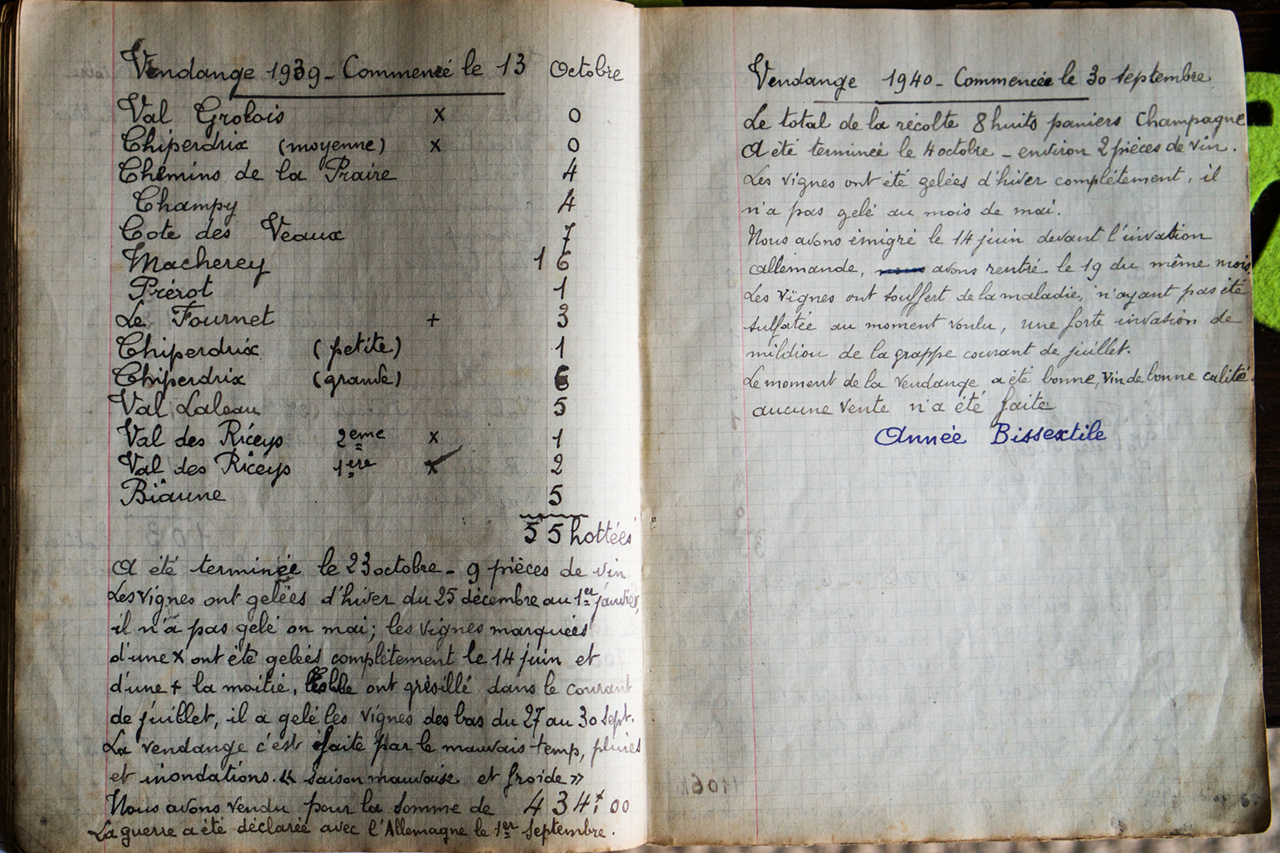 Vendange 1939 - Commencé le 13 Octobre
Val Grolois x 0
Chiperdrix (moyenne) x 0
Chemins de la Praire 4
Champy 4
Cote des Veaux 7
Macherey 16
Prérot 1
Le Fournet + 3
Chiperdrix (petite) 1
Chiperdrix (grande) 6
Val Laleau 5
Val des Riceys 2eme x 1
Val des Riceys 1ère x 2
Biaune 5
55 hottées
A été terminée le 23 octobre - 9 pièces de vin
Les vignes ont gelées d'hiver du 25 décembre au 1er janvier,
il n'a pas gelé en mai ; les vignes marquées
d'une x ont été gelées complètement le 14 juin et
d'une + la moitié, ont grèsillé dans le courant
de juillet, il a gelé les vignes des bas du 27 au 30 Sept.
La vendange c'est faite par le mauvais temp, pluies
et inondations. « saison mauvaise et froide »
Nous avons vendu pour la somme de 434f 00
La guerre a été déclarée avec l'Allemagne le 1er Septembre.
Vendange 1940 - Commencée le 30 septembre
Le total de la récolte 8 huits paniers Champagne
A été terminée le 4 octobre - environ 2 pièces de vin.
Les vignes ont été gelées d'hiver complétement, il
n'a pas gelé au mois de mai.
Nous avons émigré le 14 juin devant l'invation
allemande, avons rentré le 19 du même mois.
Les vignes ont souffert de la maladie, n'ayant pas été
sulfatée au moment voulu, une forte invasion de
mildiou de la grappe courant de juillet.
Le moment de la vendange a été bonne, vin de bonne calité.
aucune vente n'a été faite
Année Bissextile